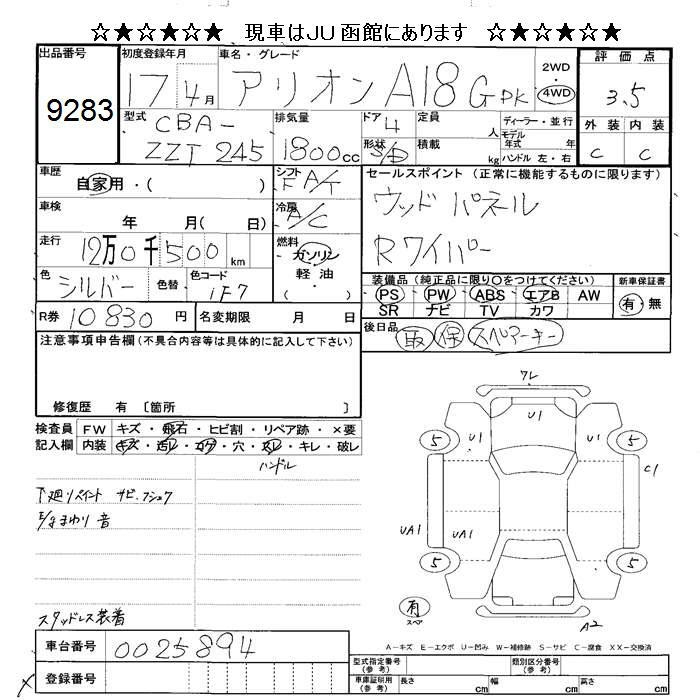 ☆★☆★☆★ 現車はJU函館にあります ☆★☆★☆★
出品番号 初度登録年月 車名・グレード 2WD 評価点
9283 17年4月 アリオン A18 G PK 4WD 3.5
型式 排気量 ドア 定員 ディーラー・並行 外装 内装
CBA- 4 人 モデル年式 年
ZZT 245 1800cc 形状 S/D 積載 kg ハンドル 左・右 C C
車歴 シフト セールスポイント (正常に機能するものに限ります)
自家用・( ) F A/T ウッドパネル
車検 年 月( 日) 冷房 A/C Rワイパー
走行 12万0千500km 燃料 ガソリン 軽油・( )
装備品 (純正品に限り○をつけてください) 新車保証書
色 シルバー 色替 色コード 1F7
PS PW ABS エアB AW 有・無
SR ナビ TV カワ
R券 10830円 名変期限 月 日
後日品 取 保 スペアーキー
注意事項申告欄(不具合内容等は具体的に記入して下さい)
修復歴 有 〔箇所 〕
検査員 FW キズ・飛石・ヒビ割・リペア跡・×要
記入欄 内装 キズ・汚レ・コゲ・穴・スレ・キレ・破レ
ハンドル
下廻りペイント サビ・フショク
E/gまわり音
スタッドレス装着
ワレ
U1
5 U1 5
C1
UA1 UA1
5 5
有
スペア A2
A－キズ E－エクボ U－凹み W－補修跡 S－サビ C－腐食 XX－交換済
車台番号 0025894
登録番号
型式指定番号(参考) 類別区分番号(参考)
車庫証明用(参考) 長さ cm 幅 cm 高さ cm